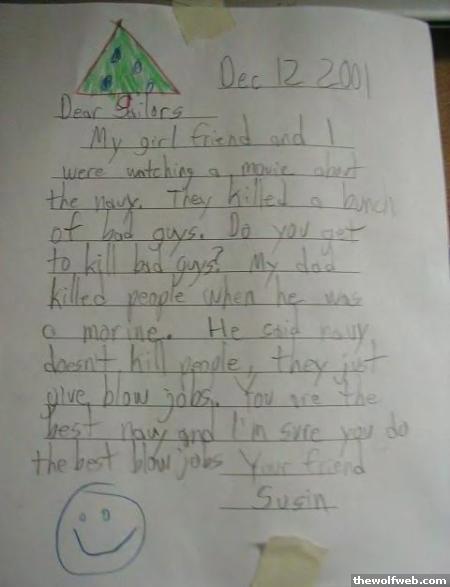 Dec 12 2001
Dear Sailors
My girl friend and I
were watching a movie about
the navy. They killed a bunch
of bad guys. Do you get
to kill bad guys? My dad
killed people when he was
a marine. He said navy
doesn't kill people, they just
give blow jobs. You are the
best navy and I'm sure you do
the best blow jobs Your friend
Susin
thewolfweb.com